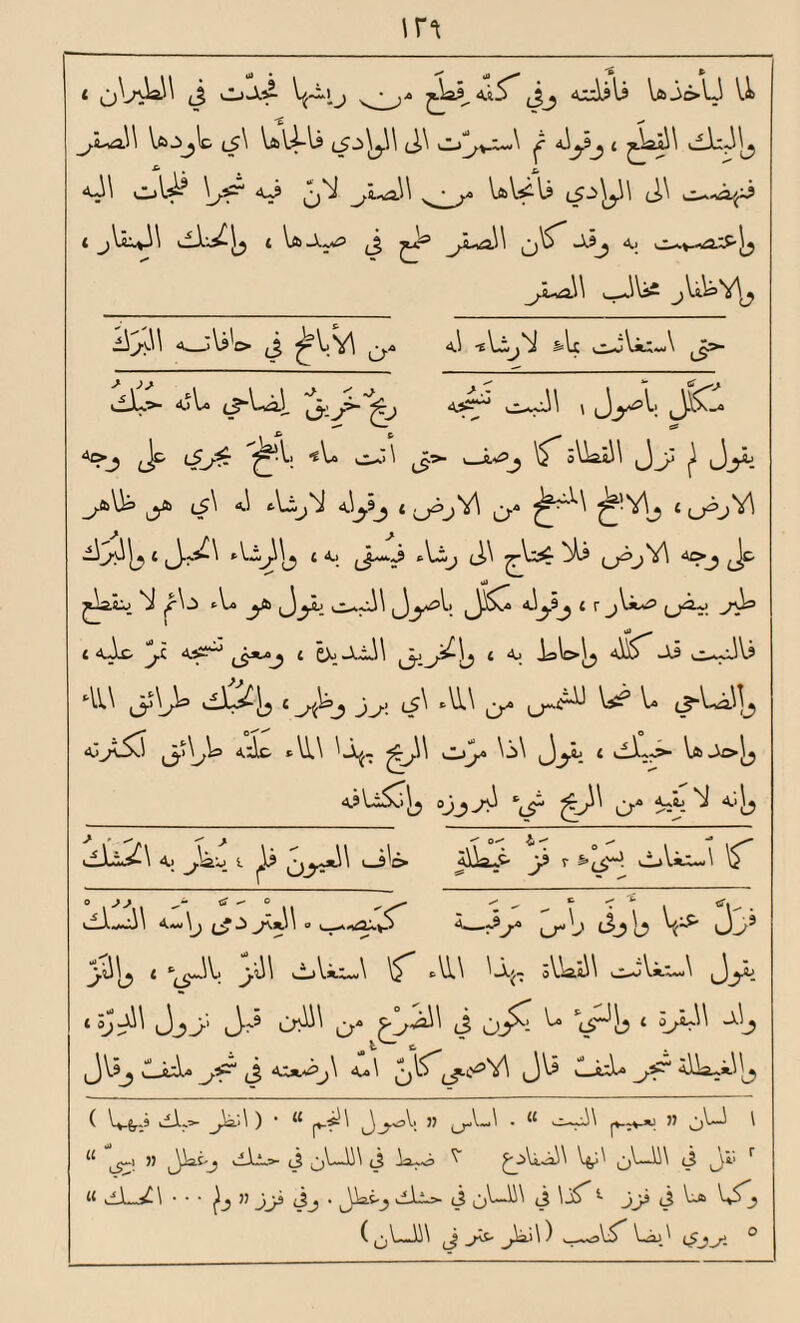 ١٣٩
لها ليأخذها فافلتته وفي كفه قطع من ريشها فنجت في الطيران ،
والبتك القطع ، وقوله ثم استمرت الى الوادي فالجأها اي عاودها الصقر
فنهضت الى الوادي فالجأها من الصقر لانّ فيه شجرا لجأت اليه
واعتصمت به وقد كان الصقر طمع في صيدها ، والحنك المنقار ،
والاظفار مخالب الصقر
حتى استغاثت بماء لا رشاء له من الاباطح في حافاته البرك
مكلل باصول ١ النبت تنسجه ريح خريق لضاحي مائه حبك
يقول لم تزل القطاة كما وصف حتى اتت ماء بابطح يجري على وجه
الارض ، والابطح ابطح من الارض ، وقوله لا رشاء له اي هو ظاهر
على وجه الارض فلا يحتاج الى رشاء يستقى به ، والرشاء الحبل ، والبرك
طير بيض صغار ٢ ، وقوله مكلل باصول النبت يقول هو ماء دائم لا ينقطع
فالنبت قد كلله واحاط به ، والخريق الشديدة ، ومعنى تنسجه تمرّ عليه ،
والضاحي ما ضحا للشمس من الماء اي برز وظهر ، والحبك طرائق الماء
واحدها حبيك ، يقول اذا مرّت الريح بهذا الماء علته طرائق لكثرته
وانه لا يقيه من الريح شيء لبروزه وانكشافه
كما استغاث بسيء ٣ فز غيطلة خاف العيون فلم ٤ ينظر به الحشك
فزل عنها ووافى رأس مرقبة كمنصب ٥ العتر دمى رأسه النسك
يقول استغاثت القطاة بهذا الماء كما استغاث الفزّ بالسيء ، والفزّ
ولد البقرة ، والسيء ما يكون في الضرع من اللبن قبل نزول الدرة ،
والغيطلة شجر ملتف قال الاصمعي كأنّ امّه ارضعته في شجر ملتف وقال
١ لسان « بعميم النبت » . اساس « باصول النجم » . ( انظر حبك فيهما )
٢ نقل في اللسان انها الضفادع ٣ ضبط في اللسان في حشك وغطل « بسيّ »
وكما هنا في فزز ٤ كذا في اللسان في حشك وغطل . وفي فزز « ولم ... الحسك »
٥ يروى ايضا كناصب ( انظر عتر في اللسان )